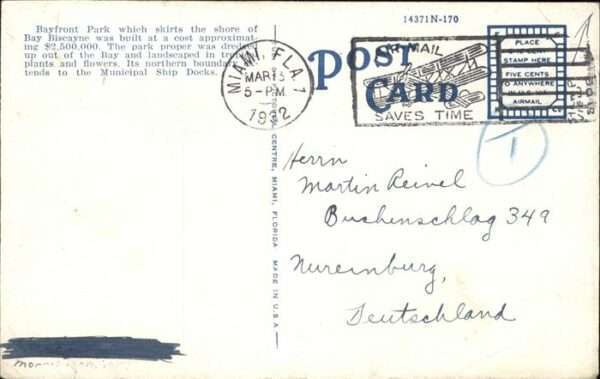 Bayfront Park which skirts the shore of
Bay Biscayne was built at a cost approximat-
ing $2,500,000. The park proper was dredged
up out of the Bay and landscaped in
plants and flowers. Its northern boundary
tends to the Municipal Ship Docks.
14371N-170
POST
CARD
MIAMI, FLA. 1
MAR
5-PM
1932
AIR MAIL
SAVES TIME
PLACE
CENT
STAMP HERE
FIVE CENTS
TO ANYWHERE
IN U.S. VIA
AIRMAIL
T
CENTRE, MIAMI, FLORIDA
MADE IN U.S.A.
Herrn
Martin Reivel
Buchenschlag 349
Nuremburg,
Deutschland